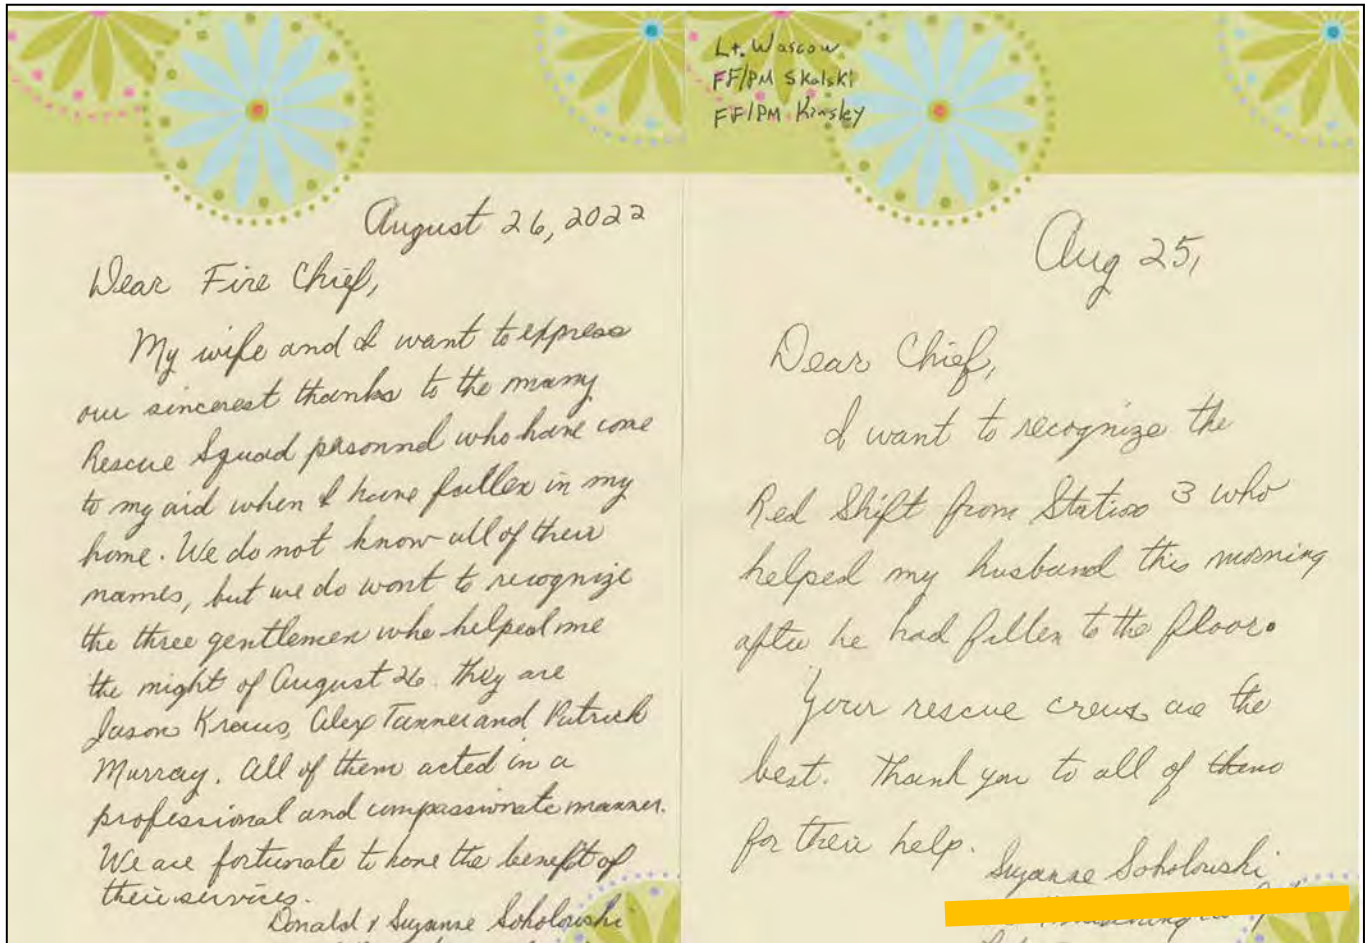 August 26, 2022
Dear Fire Chief,
My wife and I want to express
our sincerest thanks to the many
Rescue Squad personnel who have come
to my aid when I have fallen in my
home. We do not know all of their
names, but we do want to recognize
the three gentlemen who helped me
the night of August 26. They are
Jason Kraus, Alex Tanner and Patrick
Murray. All of them acted in a
professional and compassionate manner.
We are fortunate to have the benefit of
their services.
Donald & Suzanne Sokolowski
Lt. Wascow
FF/PM Skalski
FF/PM Kinsley
Aug 25,
Dear Chief,
I want to recognize the
Red Shift from Station 3 who
helped my husband this morning
after he had fallen to the floor.
Your rescue crews are the
best. Thank you to all of them
for their help.
Suzanne Sokolowski